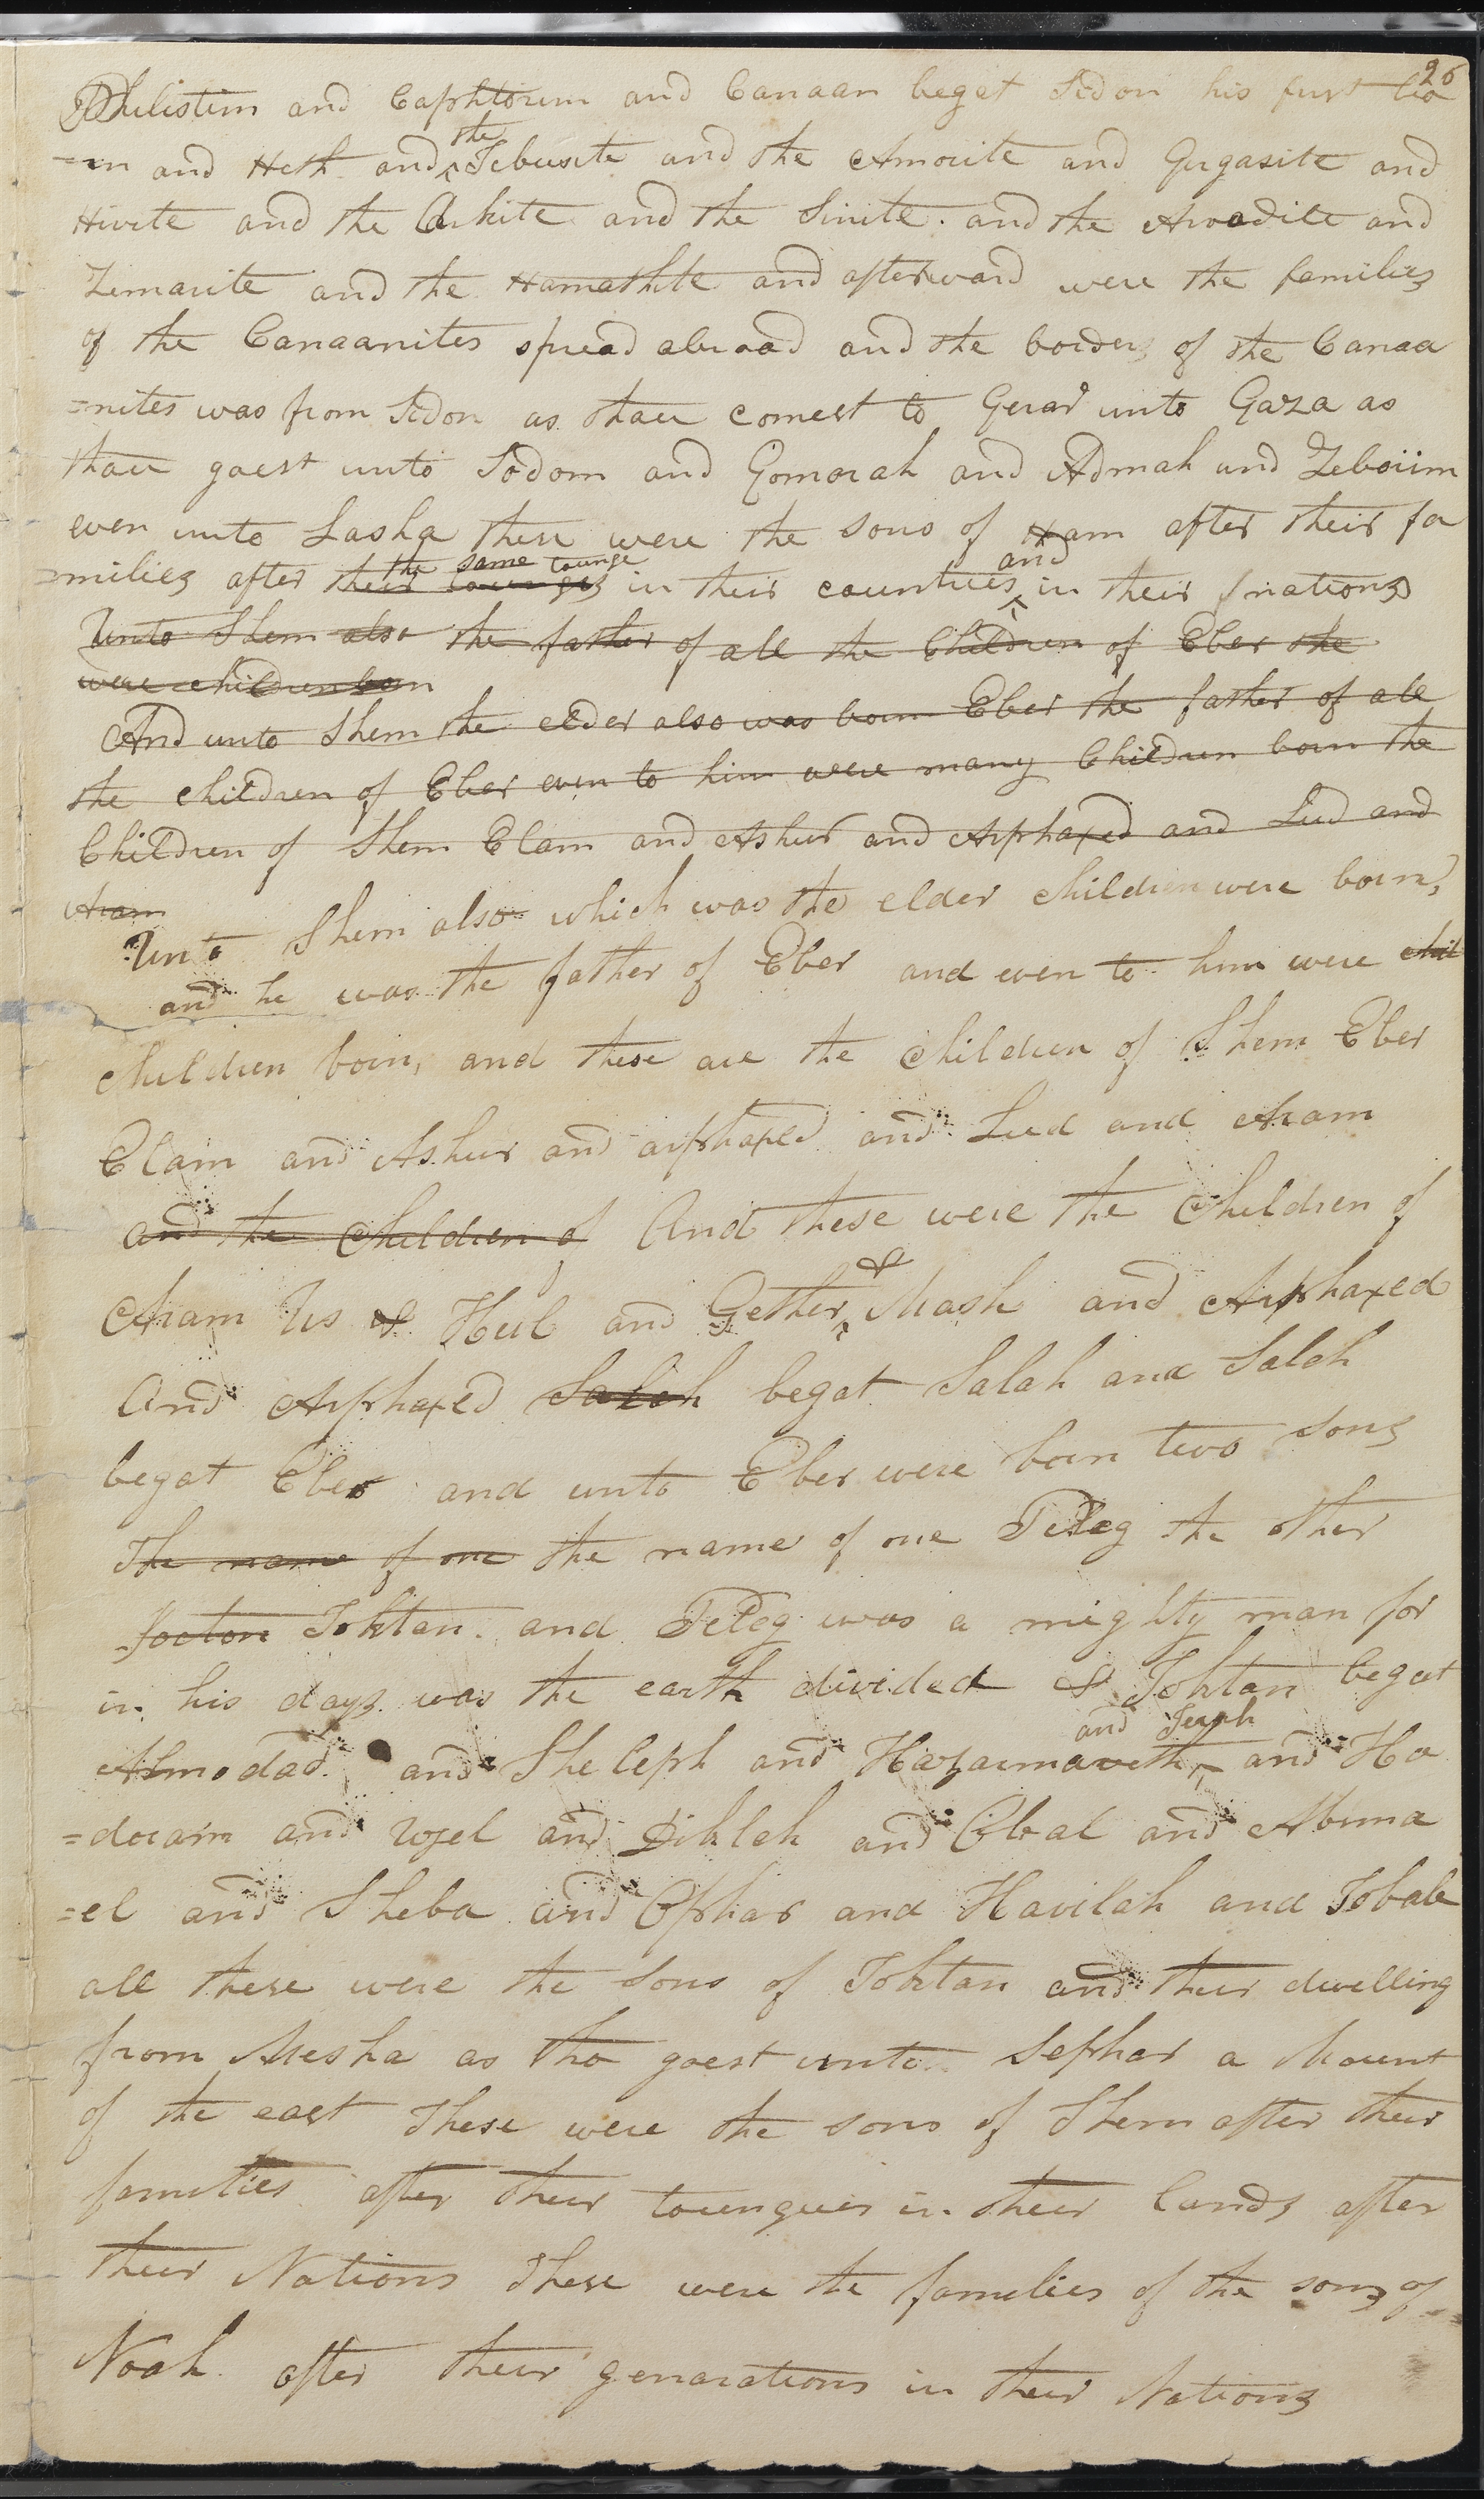 26
Philistim and Caphtorum and Canaan begat Sidon his furst bo
=rn and Heth and the Jebusite and the Amorite and Gugasite and
Hivite and the Arkite and the Sinite. and the Arvadite and
Zemarite and the Hamathite and afterward were the familiez
of the Canaanites spread abroad and the borderz of the Canaa
=nites was from Sidon as thou comest to Gerar unto Gaza as
thou goest unto Sodom and Gomorah and Admah and Zeboiim
even unto Lasha these were the sons of Ham after their fa
=miliez after their toungez the same tounge in their countries and in their nationz
Unto Shem also the father of all the Children of Eber the
were children born
And unto Shem the elder also was born Eber the father of all
the children of Eber even to him were many Children born the
Children of Shem Elam and Ashur and Arphaxed and Lud and
Aram
Unto Shem also which was the elder children were born,
and he was the father of Eber and even to him were chil
children born, and these are the children of Shem Eber
Elam and Ashur and arphaxed and Lud and Aram
and the Children of And these were the Children of
Aram Us & Hul and Gether & Mash and Arphaxed
And Arphaxed Salah begat Salah and Salah
begat Eber and unto Eber were born two sonz
The name of one the name of one Peleg the other
Jocton Joktan. and Peleg was a mighty man for
in his dayz was the earth divided & Joktan begat
Almodad and Sheleph and Hazarmaveth and Jerah and Ha
=doram and Uzel and Diklah and Obal and Abima
=el and Sheba and Ophar and Havilah and Jobab
all these were the Sons of Joktan and their dwelling
from Mesha as tho goest unto Sephar a Mount
of the east These were the sons of Shem after their
families after their toungues in their landz after
their Nations These were the families of the sonz of
Noah after their genarations in their Nationz